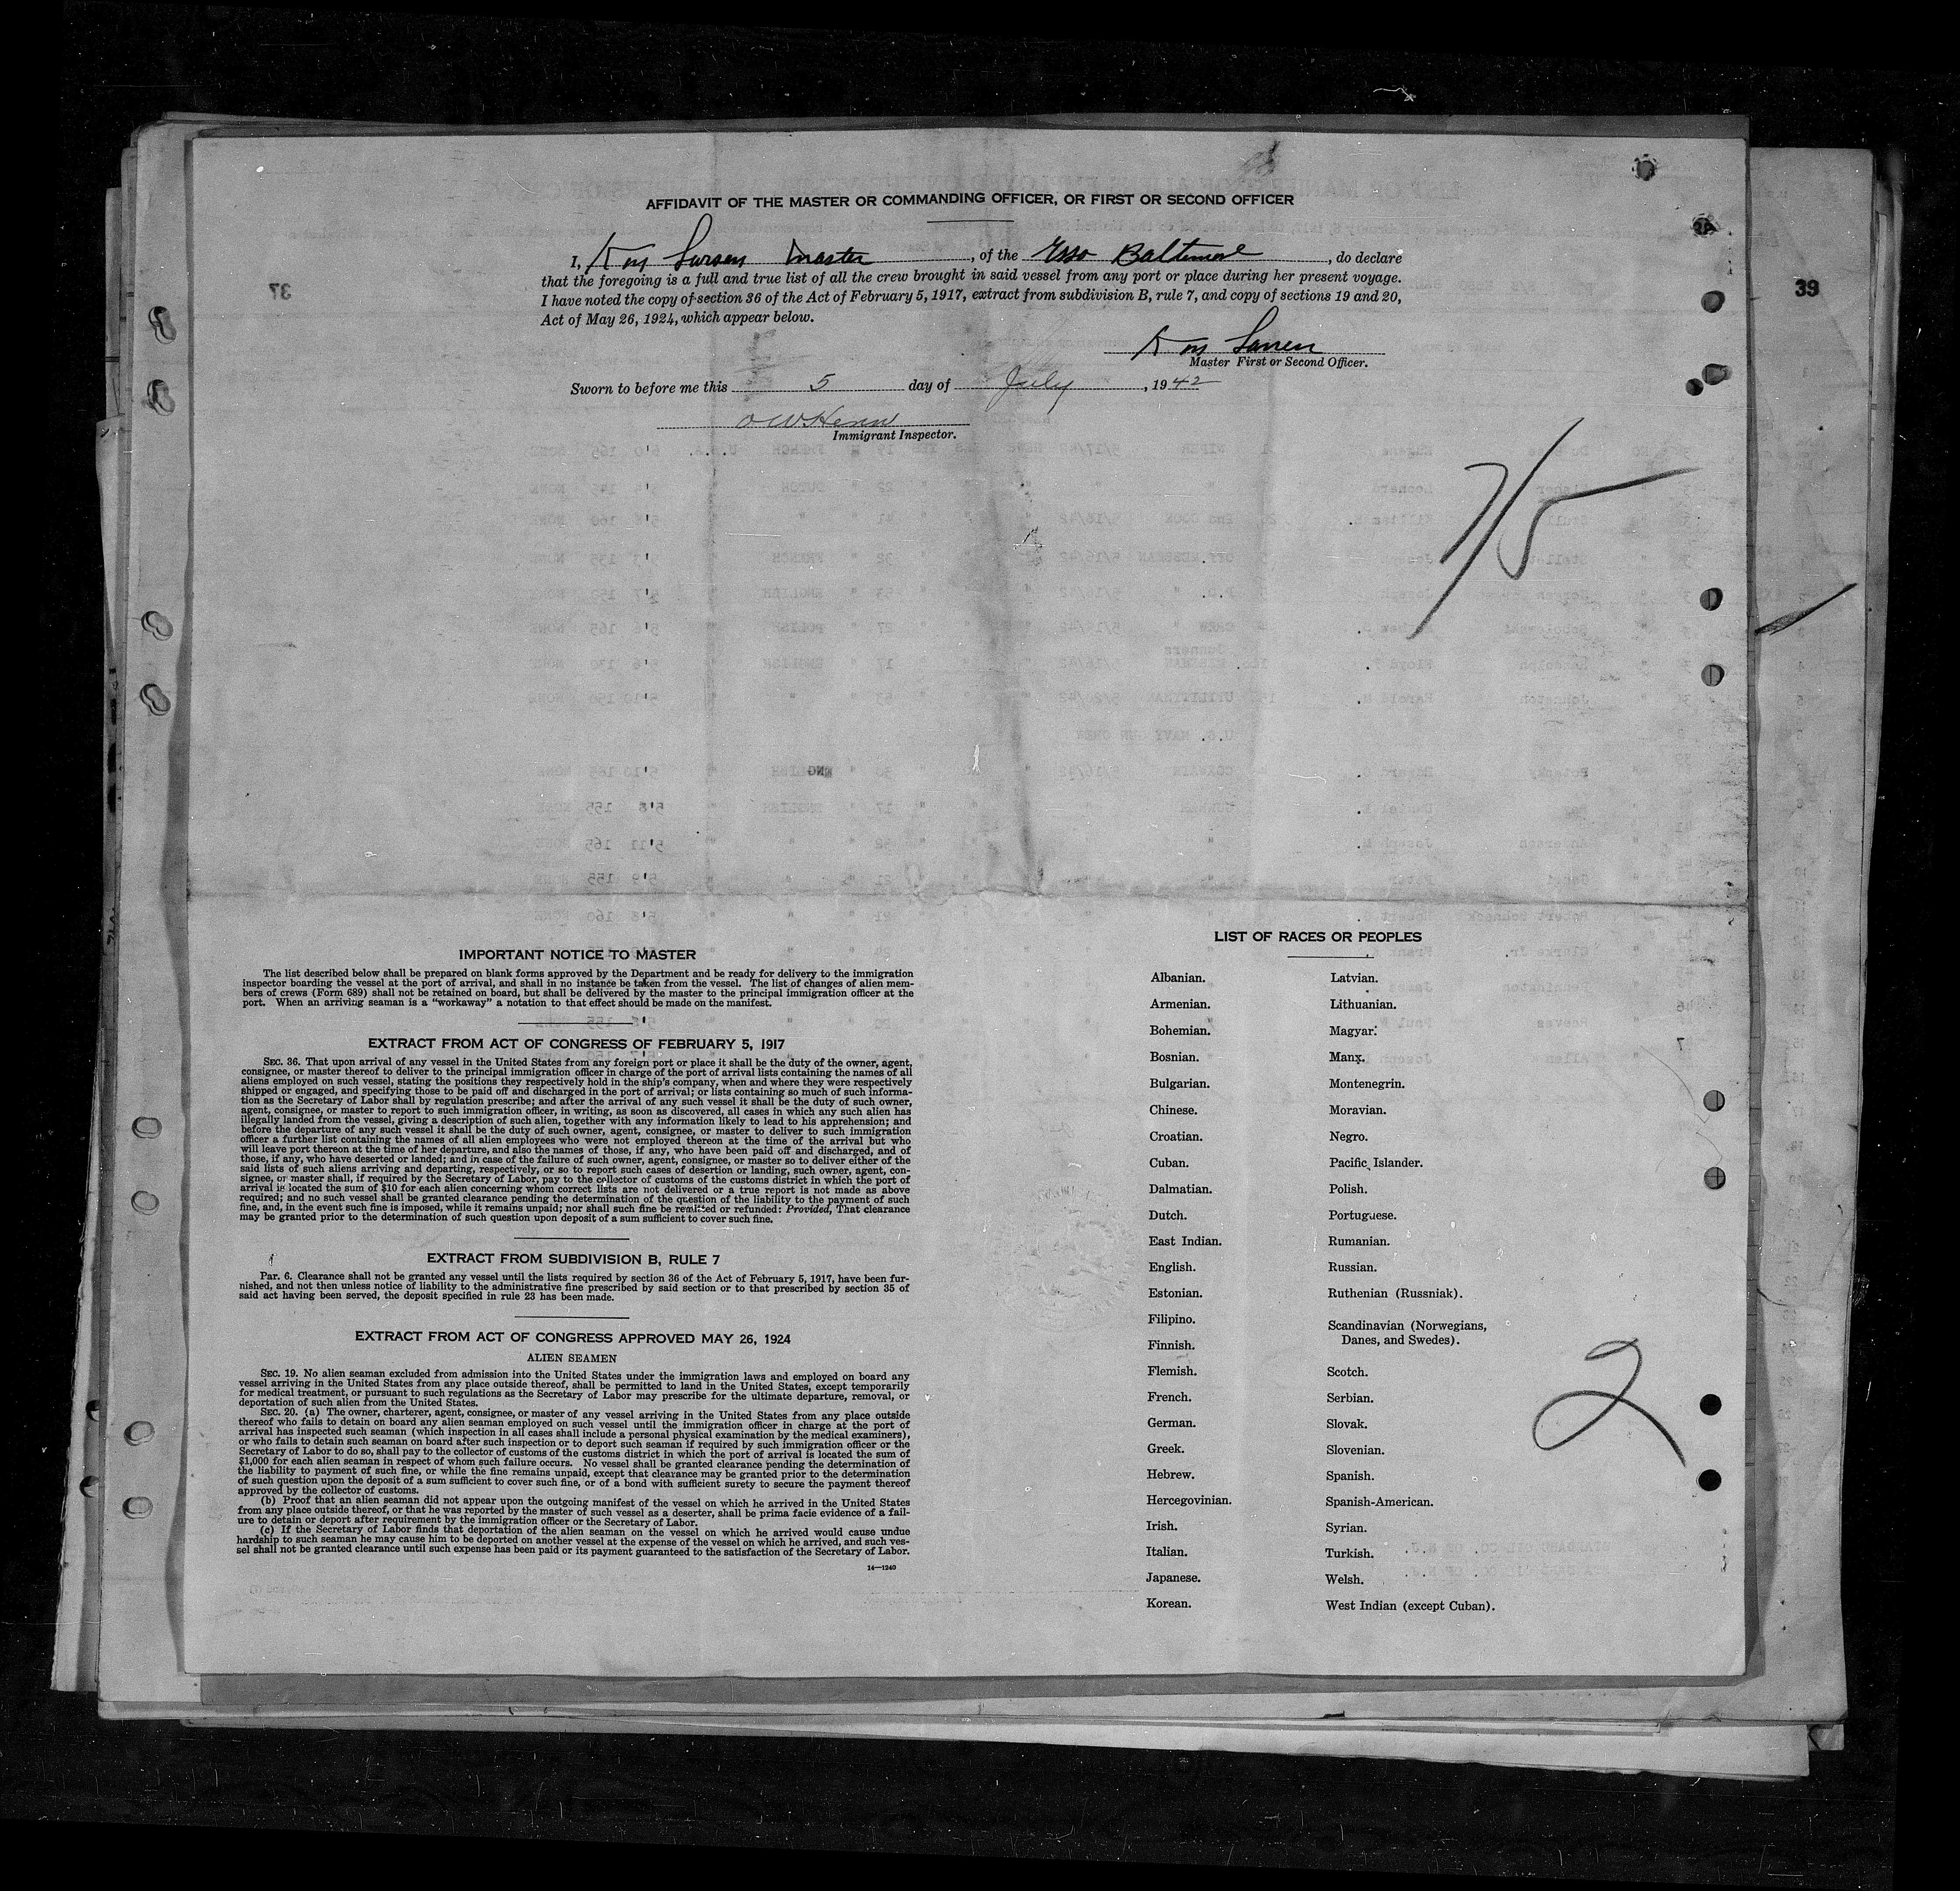 AFFIDAVIT OF THE MASTER OR COMMANDING OFFICER, OR FIRST OR SECOND OFFICER
I, Larsen master, of the Esso Baltimore, do declare
that the foregoing is a full and true list of all the crew brought in said vessel from any port or place during her present voyage.
I have noted the copy of section 36 of the Act of February 5, 1917, extract from subdivision B, rule 7, and copy of sections 19 and 20,
Act of May 26, 1924, which appear below.
39
37
Larsen
Master First or Second Officer.
Sworn to before me this 5 day of July, 1942
Immigrant Inspector.
7/5
IMPORTANT NOTICE TO MASTER
The list described below shall be prepared on blank forms approved by the Department and be ready for delivery to the immigration
inspector boarding the vessel at the port of arrival, and shall in no instance be taken from the vessel. The list of changes of alien mem-
bers of crews (Form 689) shall not be retained on board, but shall be delivered by the master to the principal immigration officer at the
port. When an arriving seaman is a "workaway" a notation to that effect should be made on the manifest.
EXTRACT FROM ACT OF CONGRESS OF FEBRUARY 5, 1917
SEC. 36. That upon arrival of any vessel in the United States from any foreign port or place it shall be the duty of the owner, agent,
consignee, or master thereof to deliver to the principal immigration officer in charge of the port of arrival lists containing the names of all
aliens employed on such vessel, stating the positions they respectively hold in the ship's company, when and where they were respectively
shipped or engaged, and specifying those to be paid off and discharged in the port of arrival; or lists containing so much of such informa-
tion as the Secretary of Labor shall by regulation prescribe; and after the arrival of any such vessel it shall be the duty of such owner,
agent, consignee, or master to report to such immigration officer, in writing, as soon as discovered, all cases in which any such alien has
illegally landed from the vessel, giving a description of such alien, together with any information likely to lead to his apprehension; and
before the departure of any such vessel it shall be the duty of such owner, agent, consignee, or master to deliver to such immigration
officer a further list containing the names of all alien employees who were not employed thereon at the time of the arrival but who
will leave port thereon at the time of her departure, and also the names of those, if any, who have been paid off and discharged, and of
those, if any, who have deserted or landed; and in case of the failure of such owner, agent, consignee, or master so to deliver either of the
said lists of such aliens arriving and departing, respectively, or so to report such cases of desertion or landing, such owner, agent, con-
signee, or master shall, if required by the Secretary of Labor, pay to the collector of customs of the customs district in which the port of
arrival is located the sum of $10 for each alien concerning whom correct lists are not delivered or a true report is not made as above
required; and no such vessel shall be granted clearance pending the determination of the question of the liability to the payment of such
fine, and, in the event such fine is imposed, while it remains unpaid; nor shall such fine be remitted or refunded: Provided, That clearance
may be granted prior to the determination of such question upon deposit of a sum sufficient to cover such fine.
EXTRACT FROM SUBDIVISION B, RULE 7
Par. 6. Clearance shall not be granted any vessel until the lists required by section 36 of the Act of February 5, 1917, have been fur-
nished, and not then unless notice of liability to the administrative fine prescribed by said section or to that prescribed by section 35 of
said act having been served, the deposit specified in rule 23 has been made.
EXTRACT FROM ACT OF CONGRESS APPROVED MAY 26, 1924
ALIEN SEAMEN
SEC. 19. No alien seaman excluded from admission into the United States under the immigration laws and employed on board any
vessel arriving in the United States from any place outside thereof, shall be permitted to land in the United States, except temporarily
for medical treatment, or pursuant to such regulations as the Secretary of Labor may prescribe for the ultimate departure, removal, or
deportation of such alien from the United States.
SEC. 20. (a) The owner, charterer, agent, consignee, or master of any vessel arriving in the United States from any place outside
thereof who fails to detain on board any alien seaman employed on such vessel until the immigration officer in charge at the port of
arrival has inspected such seaman (which inspection in all cases shall include a personal physical examination by the medical examiners),
or who fails to detain such seaman on board after such inspection or to deport such seaman if required by such immigration officer or the
Secretary of Labor to do so, shall pay to the collector of customs of the customs district in which the port of arrival is located the sum of
$1,000 for each alien seaman in respect of whom such failure occurs. No vessel shall be granted clearance pending the determination of
the liability to payment of such fine, or while the fine remains unpaid, except that clearance may be granted prior to the determination
of such question upon the deposit of a sum sufficient to cover such fine, or of a bond with sufficient surety to secure the payment thereof
approved by the collector of customs.
(b) Proof that an alien seaman did not appear upon the outgoing manifest of the vessel on which he arrived in the United States
from any place outside thereof, or that he was reported by the master of such vessel as a deserter, shall be prima facie evidence of a fail-
ure to detain or deport after requirement by the immigration officer or the Secretary of Labor.
(c) If the Secretary of Labor finds that deportation of the alien seaman on the vessel on which he arrived would cause undue
hardship to such seaman he may cause him to be deported on another vessel at the expense of the vessel on which he arrived, and such ves-
sel shall not be granted clearance until such expense has been paid or its payment guaranteed to the satisfaction of the Secretary of Labor.
14—1240
LIST OF RACES OR PEOPLES
Albanian.
Armenian.
Bohemian.
Bosnian.
Bulgarian.
Chinese.
Croatian.
Cuban.
Dalmatian.
Dutch.
East Indian.
English.
Estonian.
Filipino.
Finnish.
Flemish.
French.
German.
Greek.
Hebrew.
Hercegovinian.
Irish.
Italian.
Japanese.
Korean.
Latvian.
Lithuanian.
Magyar.
Manx.
Montenegrin.
Moravian.
Negro.
Pacific Islander.
Polish.
Portuguese.
Rumanian.
Russian.
Ruthenian (Russniak).
Scandinavian (Norwegians,
Danes, and Swedes).
Scotch.
Serbian.
Slovak.
Slovenian.
Spanish.
Spanish-American.
Syrian.
Turkish.
Welsh.
West Indian (except Cuban).
2